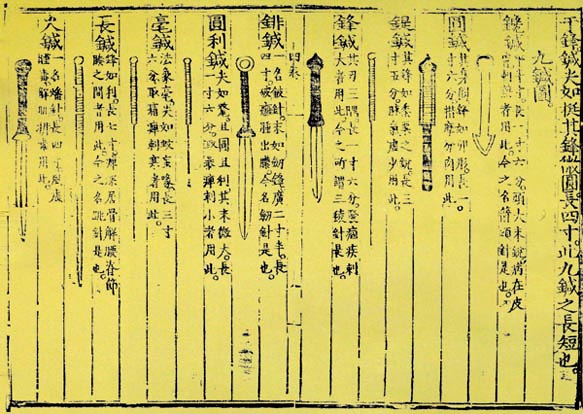 鋒鍼尖如挺其鋒微圓長四寸此九鍼之長短也。
九鍼圖。
鑱鍼
平半寸長一寸六分頭大末銳病在皮
膚刺熱者用此今之名箭頭針是也。
圓鍼
其身圓鋒如卵形長一
寸六分揩摩分肉用此。
鍉鍼
其鋒如黍粟之銳長三
寸五分脈氣虛少用此。
鋒鍼
其刃三隅長一寸六分發痼疾刺
大者用此今之所謂三稜針是也。
四卷
錍鍼
一名鈹針末如劍鋒廣二寸半長
四寸破癰腫出膿今名劍針是也。
圓利鍼
尖如氂且圓且利其末微大長
一寸六分取暴痺刺小者用此。
毫鍼
法象毫尖如蚊虻喙長三寸
六分取痛痺刺寒者用此。
長鍼
鋒如利長七寸痺深居骨解腰脊節
腠之間者用此今之名跳針是也。
火鍼
一名燔針長四寸風虛
腫毒解肌排毒用此。